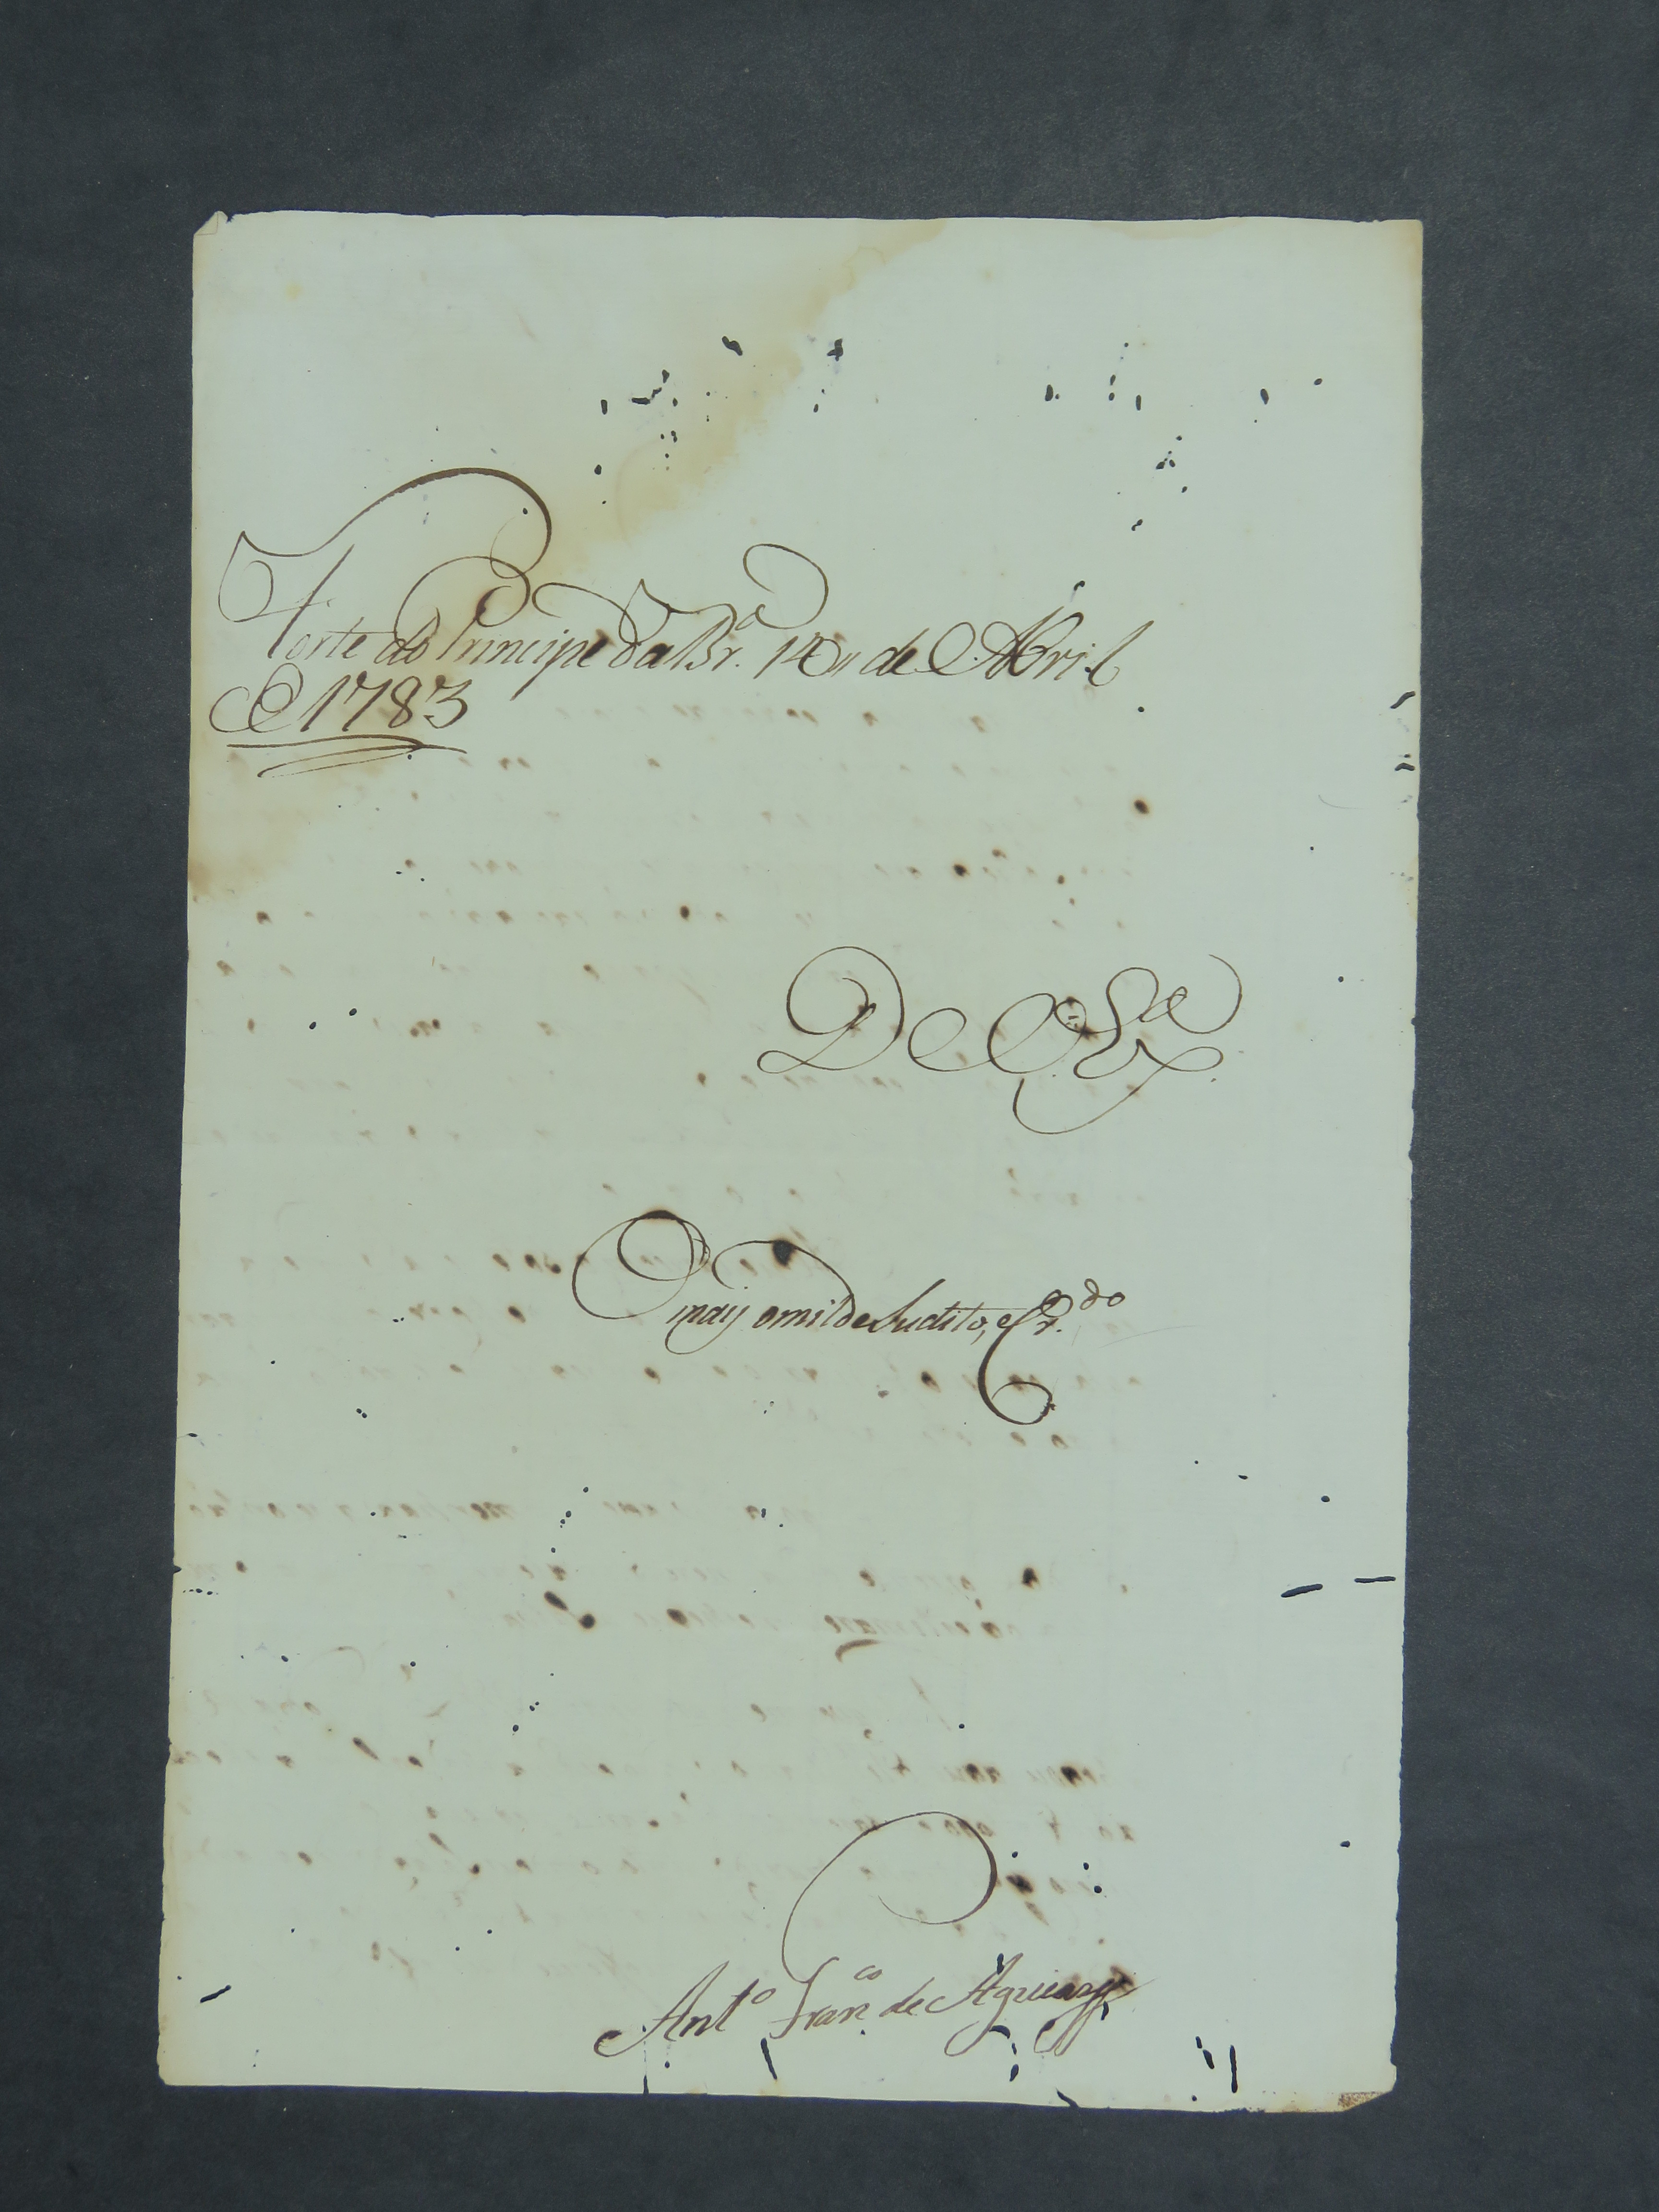 Forte do Principe da Br.ª 14 de Abril
de 1783
De V. Exª
O mais omilde Sudito, e Cr.do
Ant.º Fran.co de Aguiar